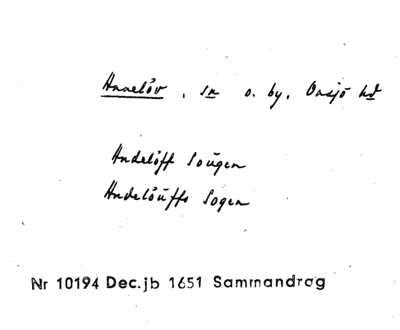 Annelöv, sn o. by, Onsjö hd
Andelöff Soūgen
Andelöūffs Sogen
Nr 10194 Dec.jb 1651 Sammandrag